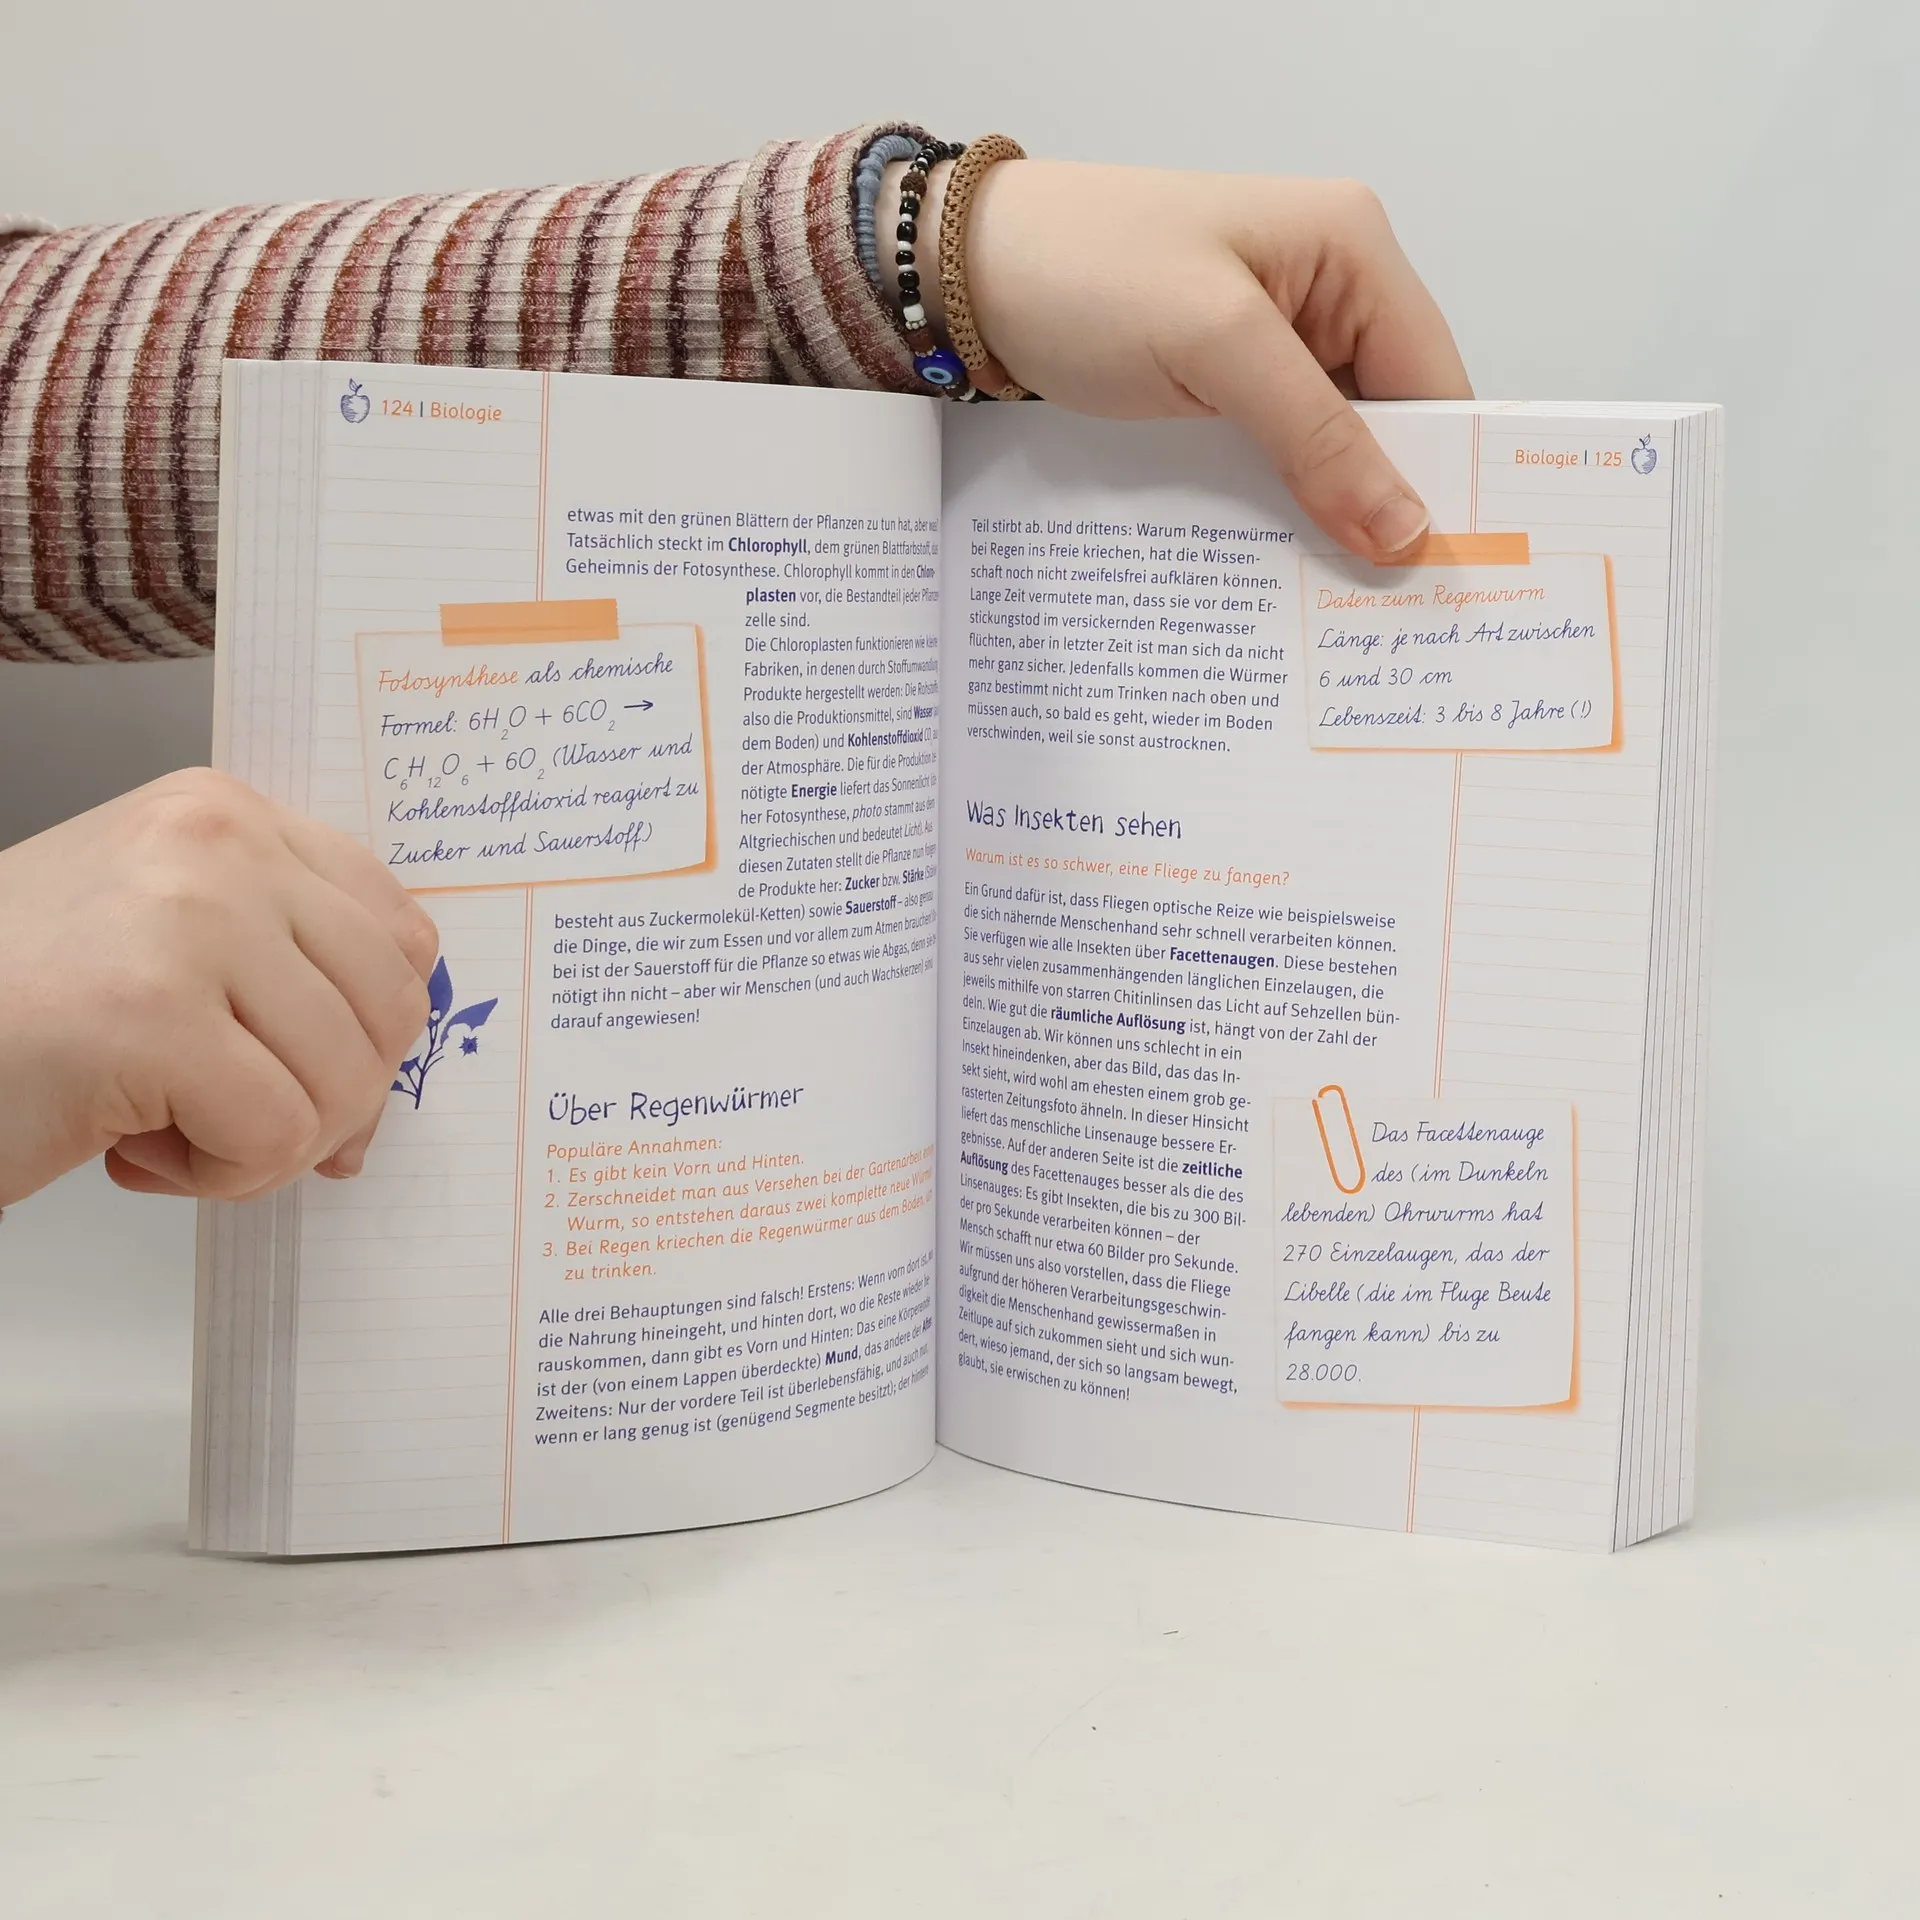 124 | Biologie
etwas mit den grünen Blättern der Pflanzen zu tun hat, aber
Tatsächlich steckt im Chlorophyll, dem grünen Blattfarbstoff,
Geheimnis der Fotosynthese. Chlorophyll kommt in den Chloro-
plasten vor, die Bestandteil jeder Pflanzen
zelle sind.
Die Chloroplasten funktionieren wie kleine
Fabriken, in denen durch Stoffumwandlung
Produkte hergestellt werden: Die Rohstoffe,
also die Produktionsmittel, sind Wasser
dem Boden) und Kohlenstoffdioxid CO
der Atmosphäre. Die für die Produktion be-
nötigte Energie liefert das Sonnenlicht (da-
her Fotosynthese, photo stammt aus dem
Altgriechischen und bedeutet Licht). Aus
diesen Zutaten stellt die Pflanze nun folgen
de Produkte her: Zucker bzw. Stärke (Stärke
besteht aus Zuckermolekül-Ketten) sowie Sauerstoff – also genau
die Dinge, die wir zum Essen und vor allem zum Atmen brauchen!
bei ist der Sauerstoff für die Pflanze so etwas wie Abgas, denn sie
nötigt ihn nicht – aber wir Menschen (und auch Wachskerzen) sind
darauf angewiesen!
Fotosynthese als chemische
Formel: 6H₂O + 6CO₂ →
C₆H₁₂O₆ + 6O₂ (Wasser und
Kohlenstoffdioxid reagiert zu
Zucker und Sauerstoff)
Über Regenwürmer
Populäre Annahmen:
1. Es gibt kein Vorn und Hinten.
2. Zerschneidet man aus Versehen bei der Gartenarbeit
Wurm, so entstehen daraus zwei komplette neue Würmer.
3. Bei Regen kriechen die Regenwürmer aus dem Boden, um
zu trinken.
Alle drei Behauptungen sind falsch! Erstens: Wenn vorn dort ist, wo
die Nahrung hineingeht, und hinten dort, wo die Reste wieder he-
rauskommen, dann gibt es Vorn und Hinten: Das eine Körperende
ist der (von einem Lappen überdeckte) Mund, das andere der After.
Zweitens: Nur der vordere Teil ist überlebensfähig, und auch nur,
wenn er lang genug ist (genügend Segmente besitzt); der hintere
Biologie | 125
Teil stirbt ab. Und drittens: Warum Regenwürmer
bei Regen ins Freie kriechen, hat die Wissen-
schaft noch nicht zweifelsfrei aufklären können.
Lange Zeit vermutete man, dass sie vor dem Er-
stickungstod im versickernden Regenwasser
flüchten, aber in letzter Zeit ist man sich da nicht
mehr ganz sicher. Jedenfalls kommen die Würmer
ganz bestimmt nicht zum Trinken nach oben und
müssen auch, so bald es geht, wieder im Boden
verschwinden, weil sie sonst austrocknen.
Daten zum Regenwurm
Länge: je nach Art zwischen
6 und 30 cm
Lebenszeit: 3 bis 8 Jahre (!)
Was Insekten sehen
Warum ist es so schwer, eine Fliege zu fangen?
Ein Grund dafür ist, dass Fliegen optische Reize wie beispielsweise
die sich nähernde Menschenhand sehr schnell verarbeiten können.
Sie verfügen wie alle Insekten über Facettenaugen. Diese bestehen
aus sehr vielen zusammenhängenden länglichen Einzelaugen, die
jeweils mithilfe von starren Chitinlinsen das Licht auf Sehzellen bün-
deln. Wie gut die räumliche Auflösung ist, hängt von der Zahl der
Einzelaugen ab. Wir können uns schlecht in ein
Insekt hineindenken, aber das Bild, das das In-
sekt sieht, wird wohl am ehesten einem grob ge-
rasterten Zeitungsfoto ähneln. In dieser Hinsicht
liefert das menschliche Linsenauge bessere Er-
gebnisse. Auf der anderen Seite ist die zeitliche
Auflösung des Facettenauges besser als die des
Linsenauges: Es gibt Insekten, die bis zu 300 Bil-
der pro Sekunde verarbeiten können – der
Mensch schafft nur etwa 60 Bilder pro Sekunde.
Wir müssen uns also vorstellen, dass die Fliege
aufgrund der höheren Verarbeitungsgeschwin-
digkeit die Menschenhand gewissermaßen in
Zeitlupe auf sich zukommen sieht und sich wun-
dert, wieso jemand, der sich so langsam bewegt,
glaubt, sie erwischen zu können!
Das Facettenauge
des (im Dunkeln
lebenden) Ohrwurms hat
270 Einzelaugen, das der
Libelle (die im Fluge Beute
fangen kann) bis zu
28.000.